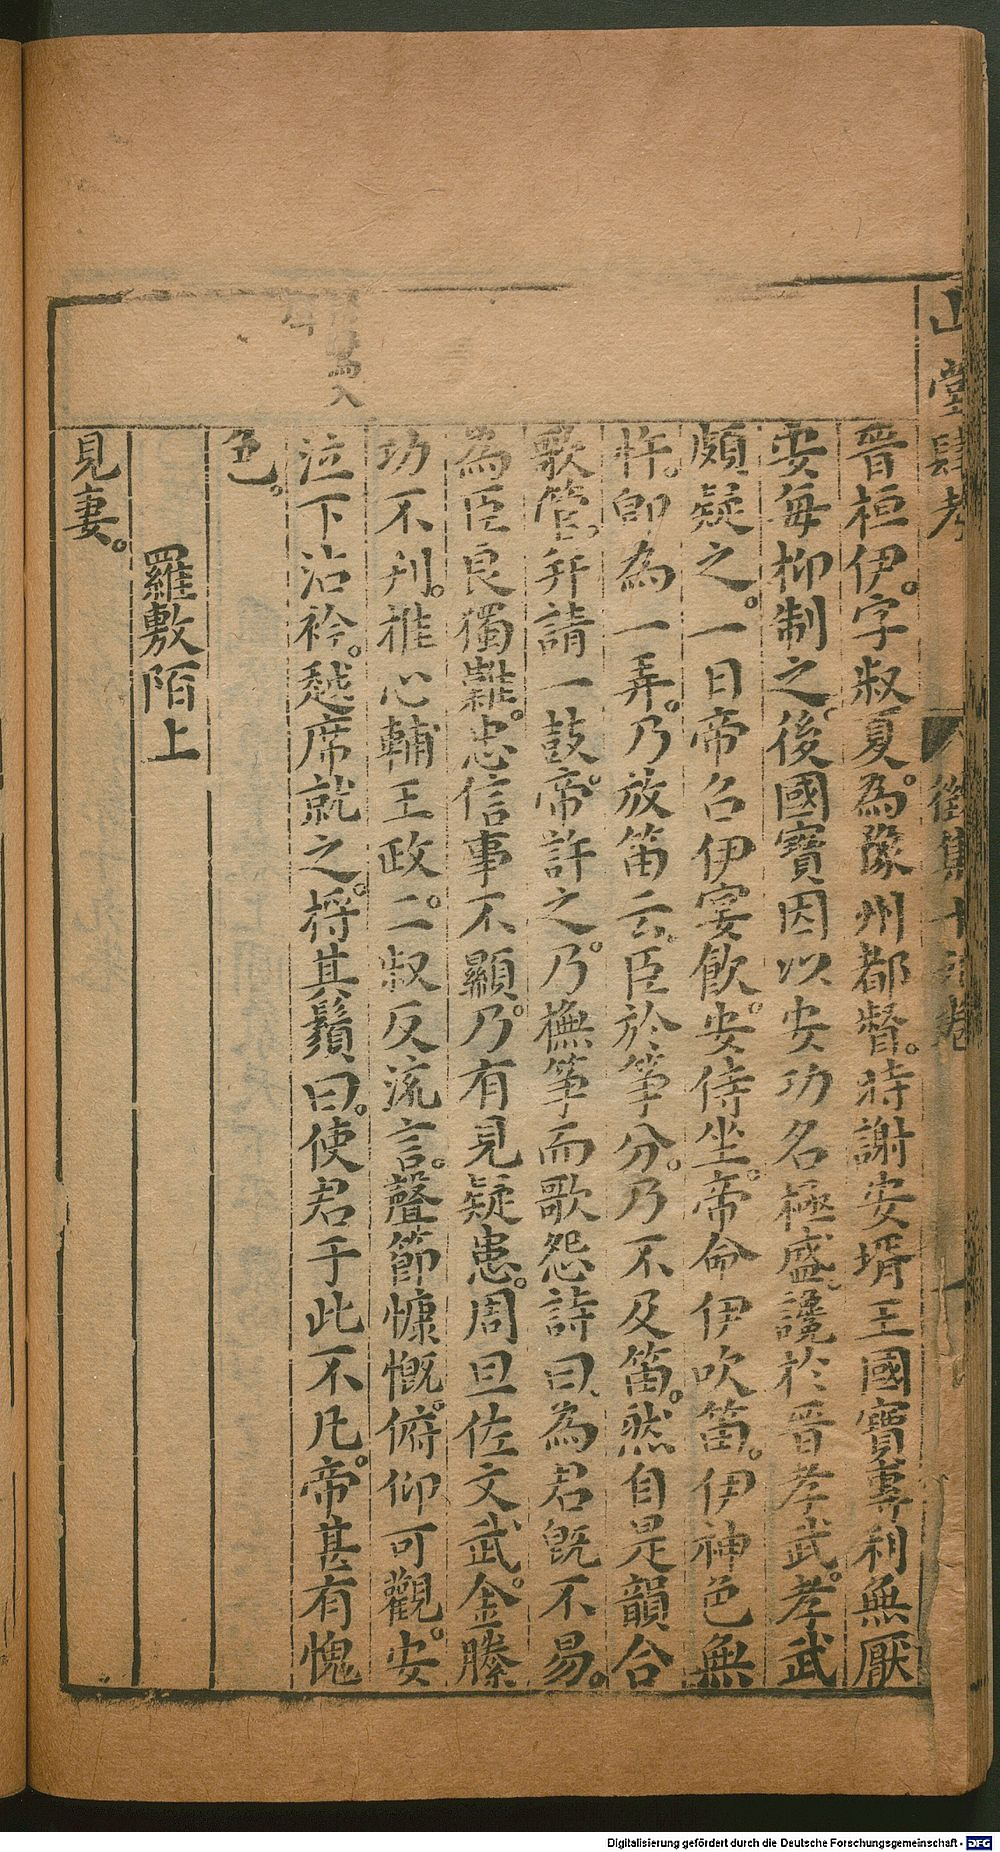 晉桓伊。字叔夏。為豫州都督。時謝安壻王國寶專利無厭
安每抑制之。後國寶因以安功名極盛。讒於晉孝武。孝武
頗疑之。一日帝召伊宴飲。安侍坐。帝命伊吹笛。伊神色無
忤。即為一弄。乃放笛云。臣於箏分。乃不及笛。然自是韻合
歌管。并請一鼓。帝許之。乃撫箏而歌怨詩曰、為君旣不易。
為臣良獨難。忠信事不顯。乃有見疑患。周旦佐文武。金縢
功不刋。推心輔王政。二叔反流言。聲節慷慨。俯仰可觀。安
泣下沾衿。越席就之。捋其鬚曰。使君于此不凡。帝甚有愧
色。
羅敷陌上
見妻。
Digitalisierung gefördert durch die Deutsche Forschungsgemeinschaft - DFG